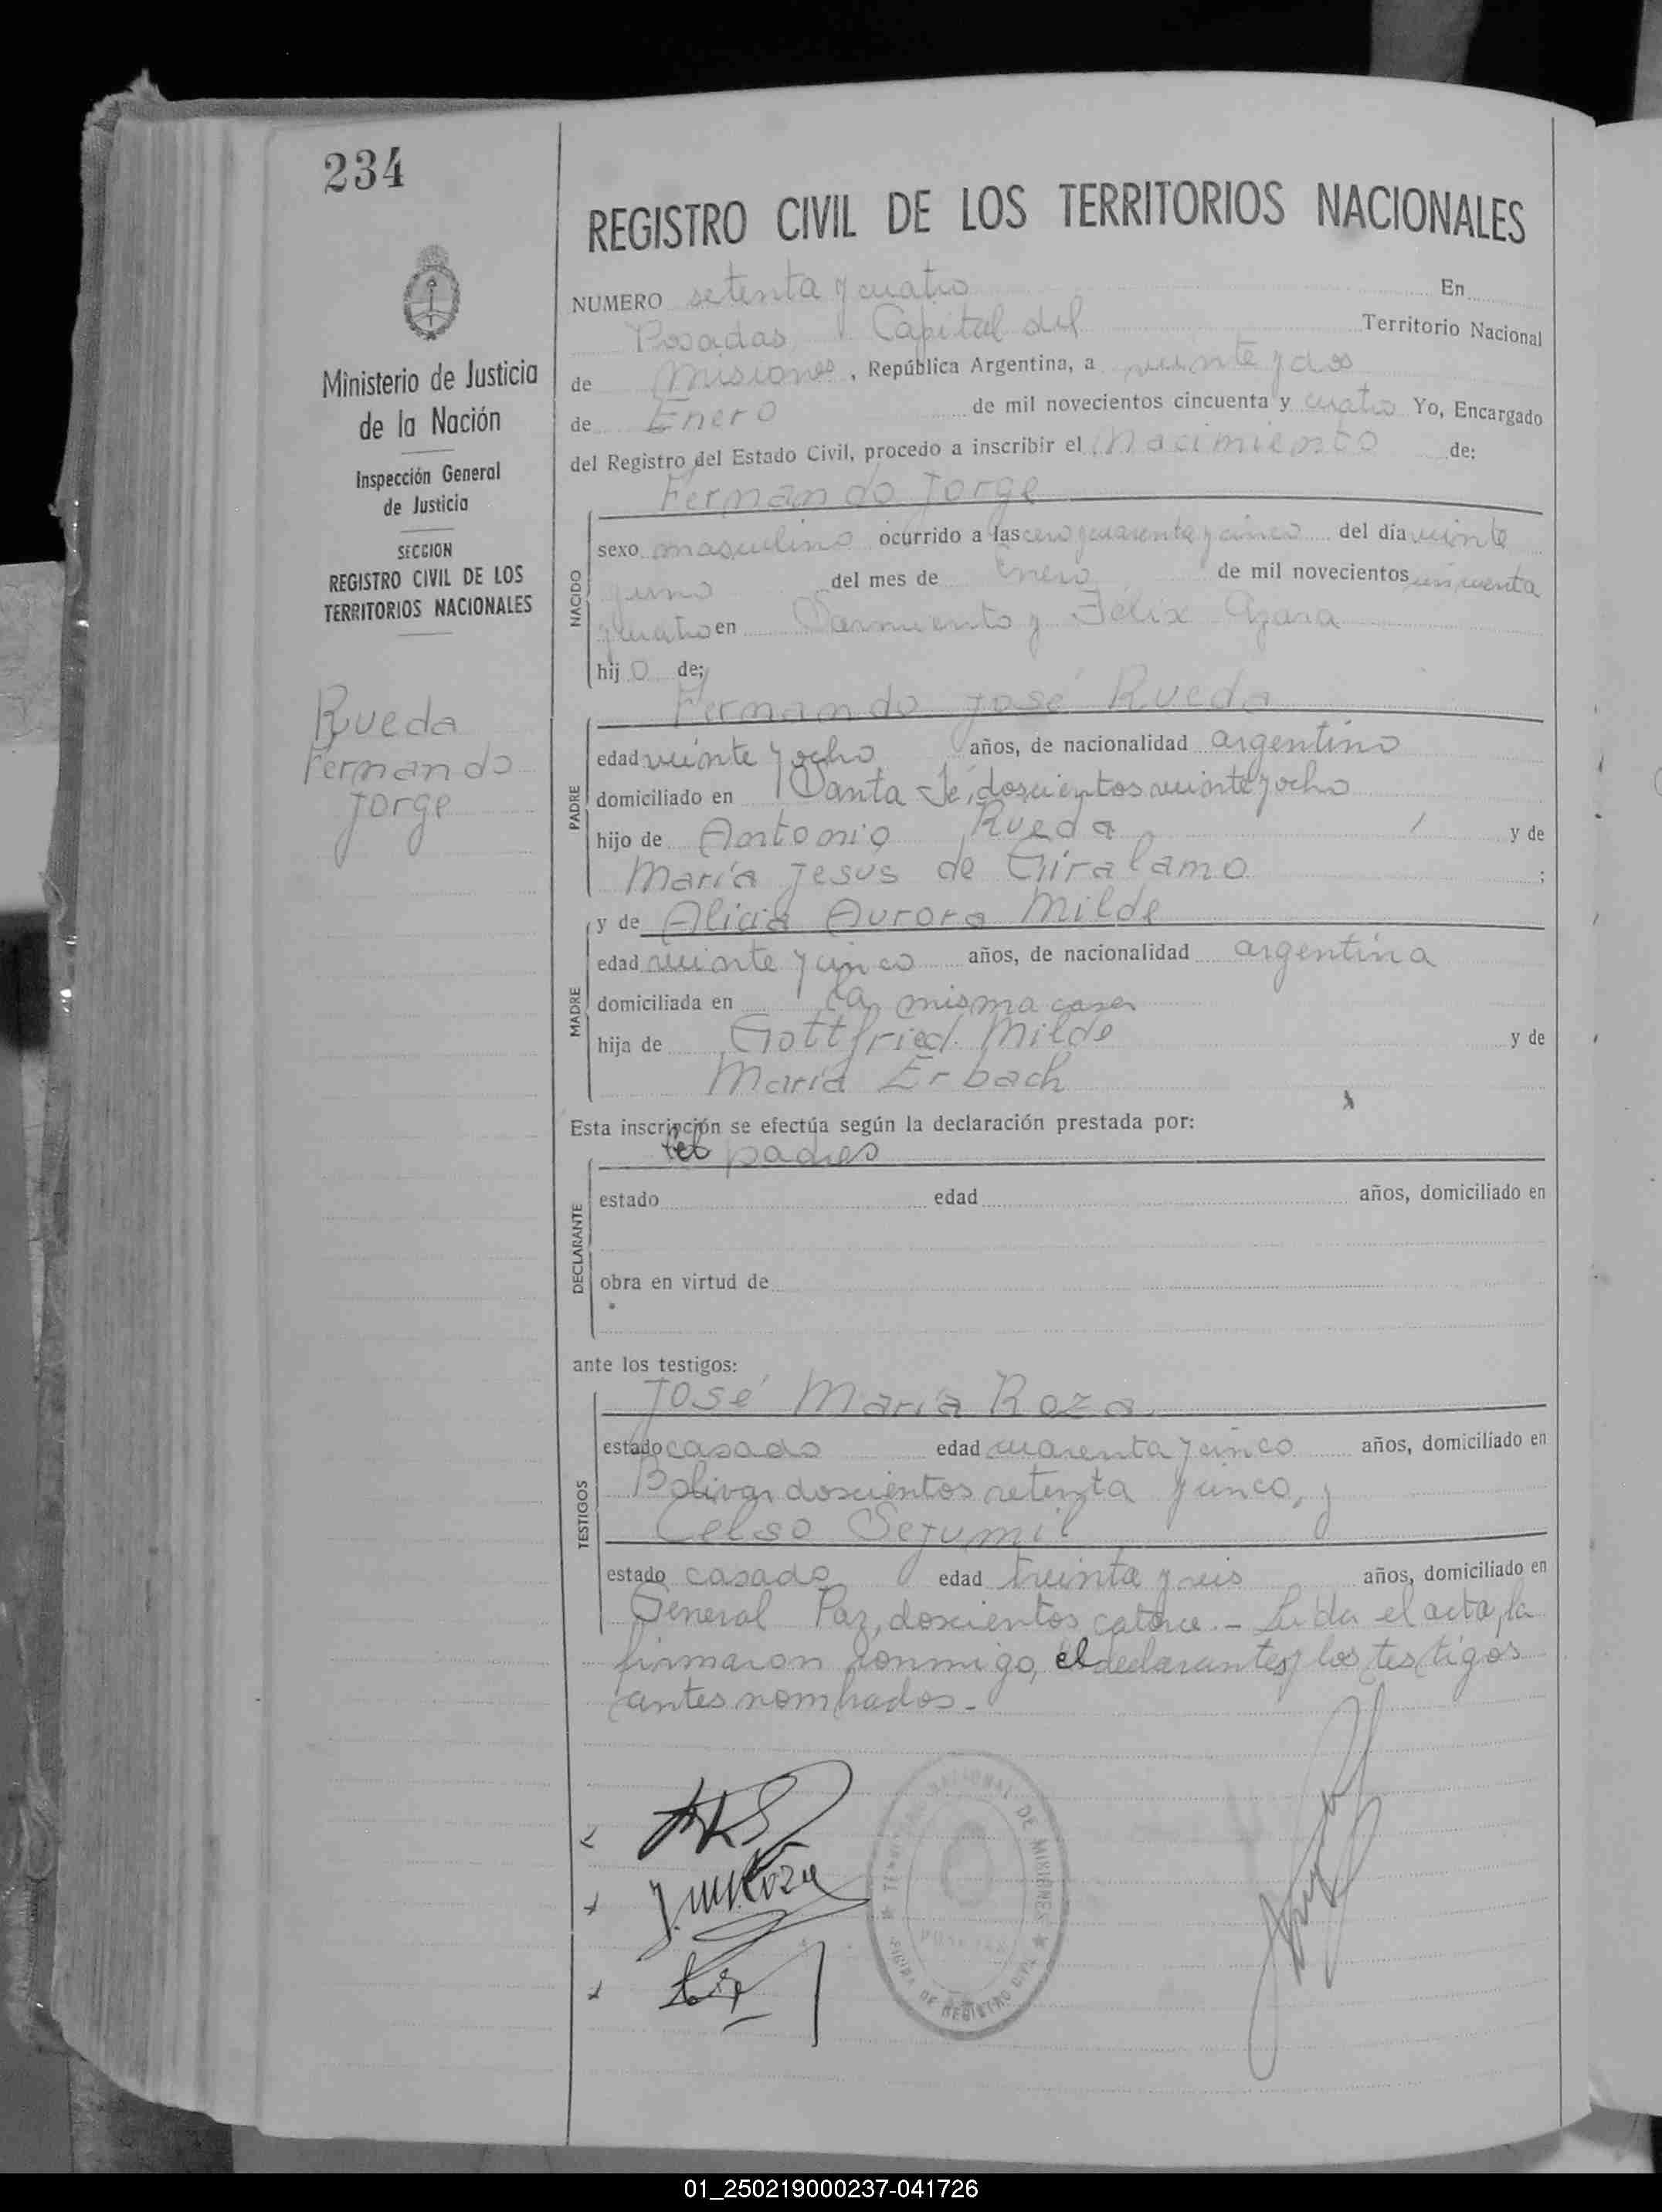 234
Ministerio de Justicia
de la Nación
Inspección General
de Justicia
SECCION
REGISTRO CIVIL DE LOS
TERRITORIOS NACIONALES
Rueda
Fernando
Jorge
REGISTRO CIVIL DE LOS TERRITORIOS NACIONALES
NUMERO setenta y cuatro En
Posadas Capital del Territorio Nacional
de Misiones, República Argentina, a veinte y dos
de Enero de mil novecientos cincuenta y cuatro Yo, Encargado
del Registro del Estado Civil, procedo a inscribir el Nacimiento de:
Fernando Jorge
NACIDO
sexo masculino ocurrido a las cero y cuarenta y cinco del día veinte
y uno del mes de Enero de mil novecientos cincuenta
y cuatro en Sarmiento y Félix Azara
hijo de;
Fernando José Rueda
PADRE
edad veinte y ocho años, de nacionalidad argentino
domiciliado en Santa Fé, doscientos veinte y ocho
hijo de Antonio Rueda y de
María Jesús de Giralamo ;
y de Alicia Aurora Milde
MADRE
edad veinte y cinco años, de nacionalidad argentina
domiciliada en la misma casa
hija de Gottfried Milde y de
María Erbach
Esta inscripción se efectúa según la declaración prestada por:
padres
DECLARANTE
estado edad años, domiciliado en
obra en virtud de
ante los testigos:
José María Roza
TESTIGOS
estado casado edad cuarenta y cinco años, domiciliado en
Bolivar doscientos setenta y cinco, y
Celso
estado casado edad treinta y seis años, domiciliado en
General Paz, doscientos catorce.- Leida el acta, la
firmaron conmigo, el declarantes y los testigos
antes nombrados.-
J. M. Roza
TERRITORIO NACIONAL DE MISIONES
POSADAS
OFICINA DE REGISTRO CIVIL
01_250219000237-041726